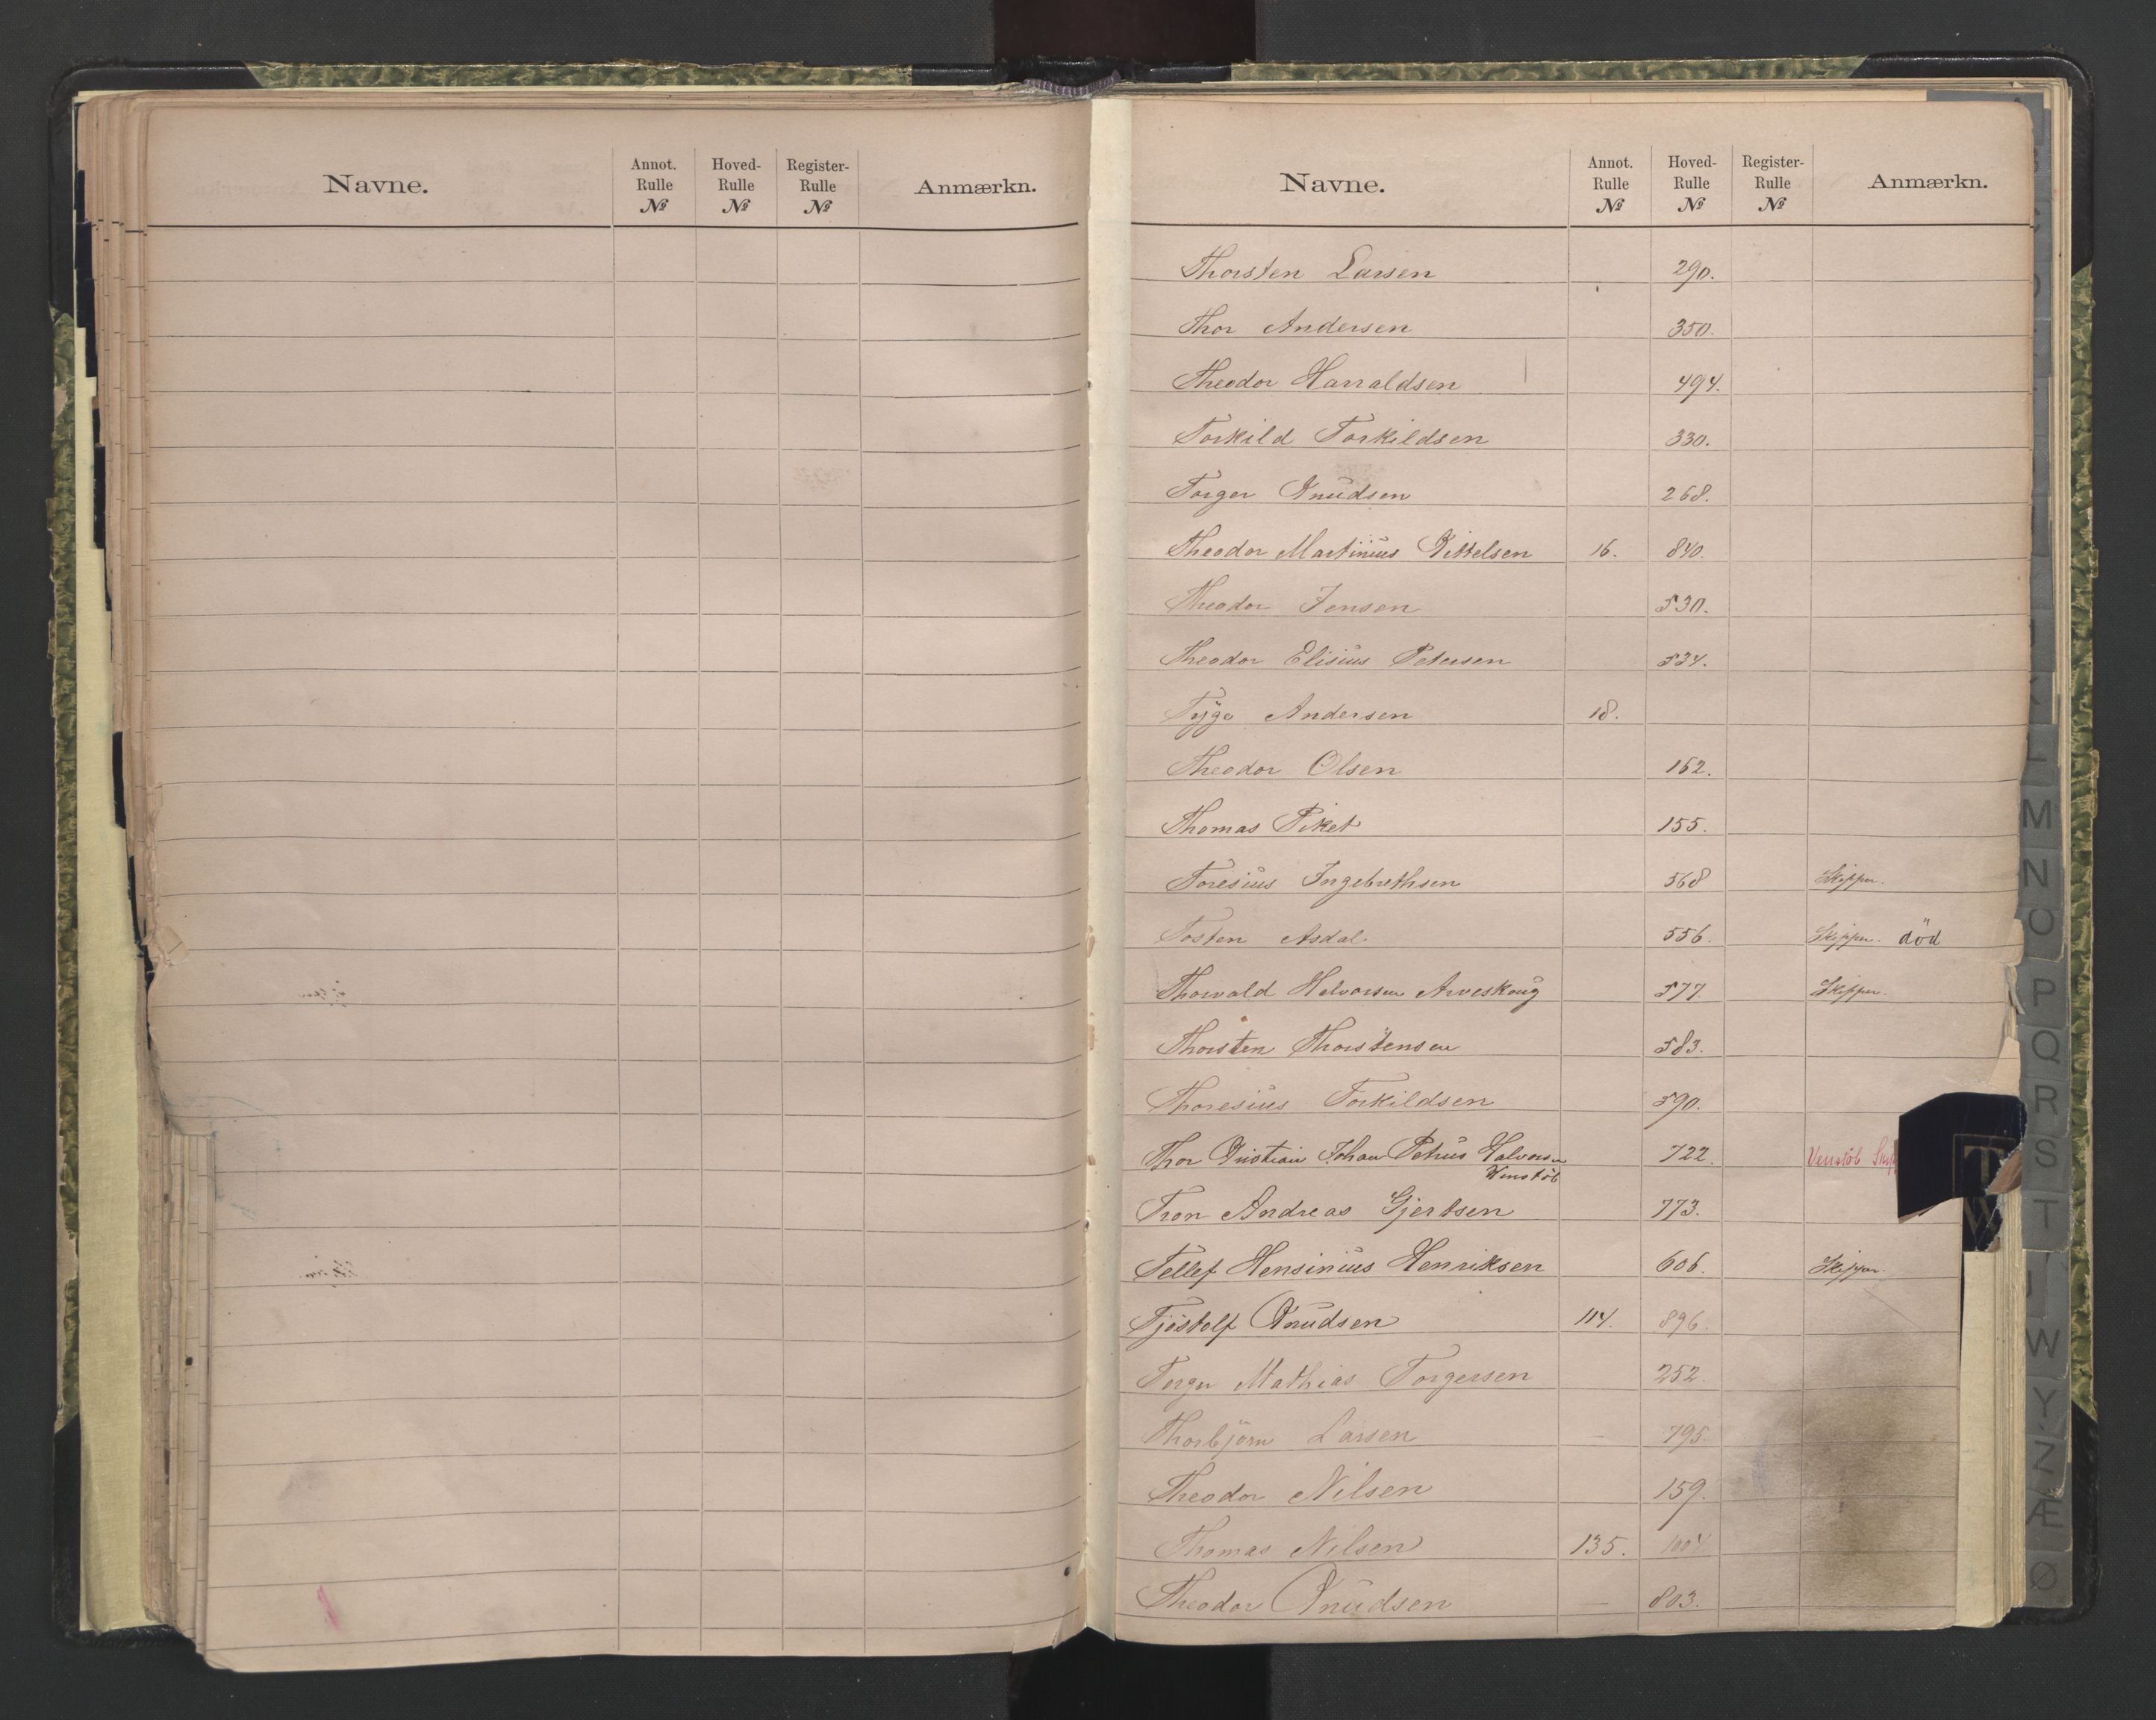 Navne. Annot. Rulle № Hoved-Rulle № Register-Rulle № Anmærkn.
Navne. Annot. Rulle № Hoved-Rulle № Register-Rulle № Anmærkn.
Thorsten Larsen 290.
Thor Andersen 350.
Theodor Harraldsen 494.
Torkild Torkildsen 330.
Torger Knudsen 268.
Theodor Martinius Kittelsen 16. 840.
Theodor Jensen 530.
Theodor Elisius Petersen 534.
Tyge Andersen 18.
Theodor Olsen 162.
Thomas Piket 155.
Toresius Ingebrethsen 568 Skipper.
Tosten Asdal 556. Skipper. död
Thorvald Halvorsen Arveskoug 577. Skipper.
Thorsten Thorstensen 583.
Thoresius Torkildsen 590.
Thor Kristian Johan Petrus Halvorsen 722. Venstöb
Wenstöb
Tron Andreas Gjertsen 773.
Tellef Hensinius Henriksen 606. Skipper.
Tjöstolf Knudsen 114. 896.
Torger Mathias Torgersen 252.
Thorbjörn Larsen – 795.
Theodor Nilsen 159.
Thomas Nilsen 135. 1004
Theodor Knudsen – 803.
M
N
O
P
Q
R
S
T
W
Y
Z
Æ
Ø